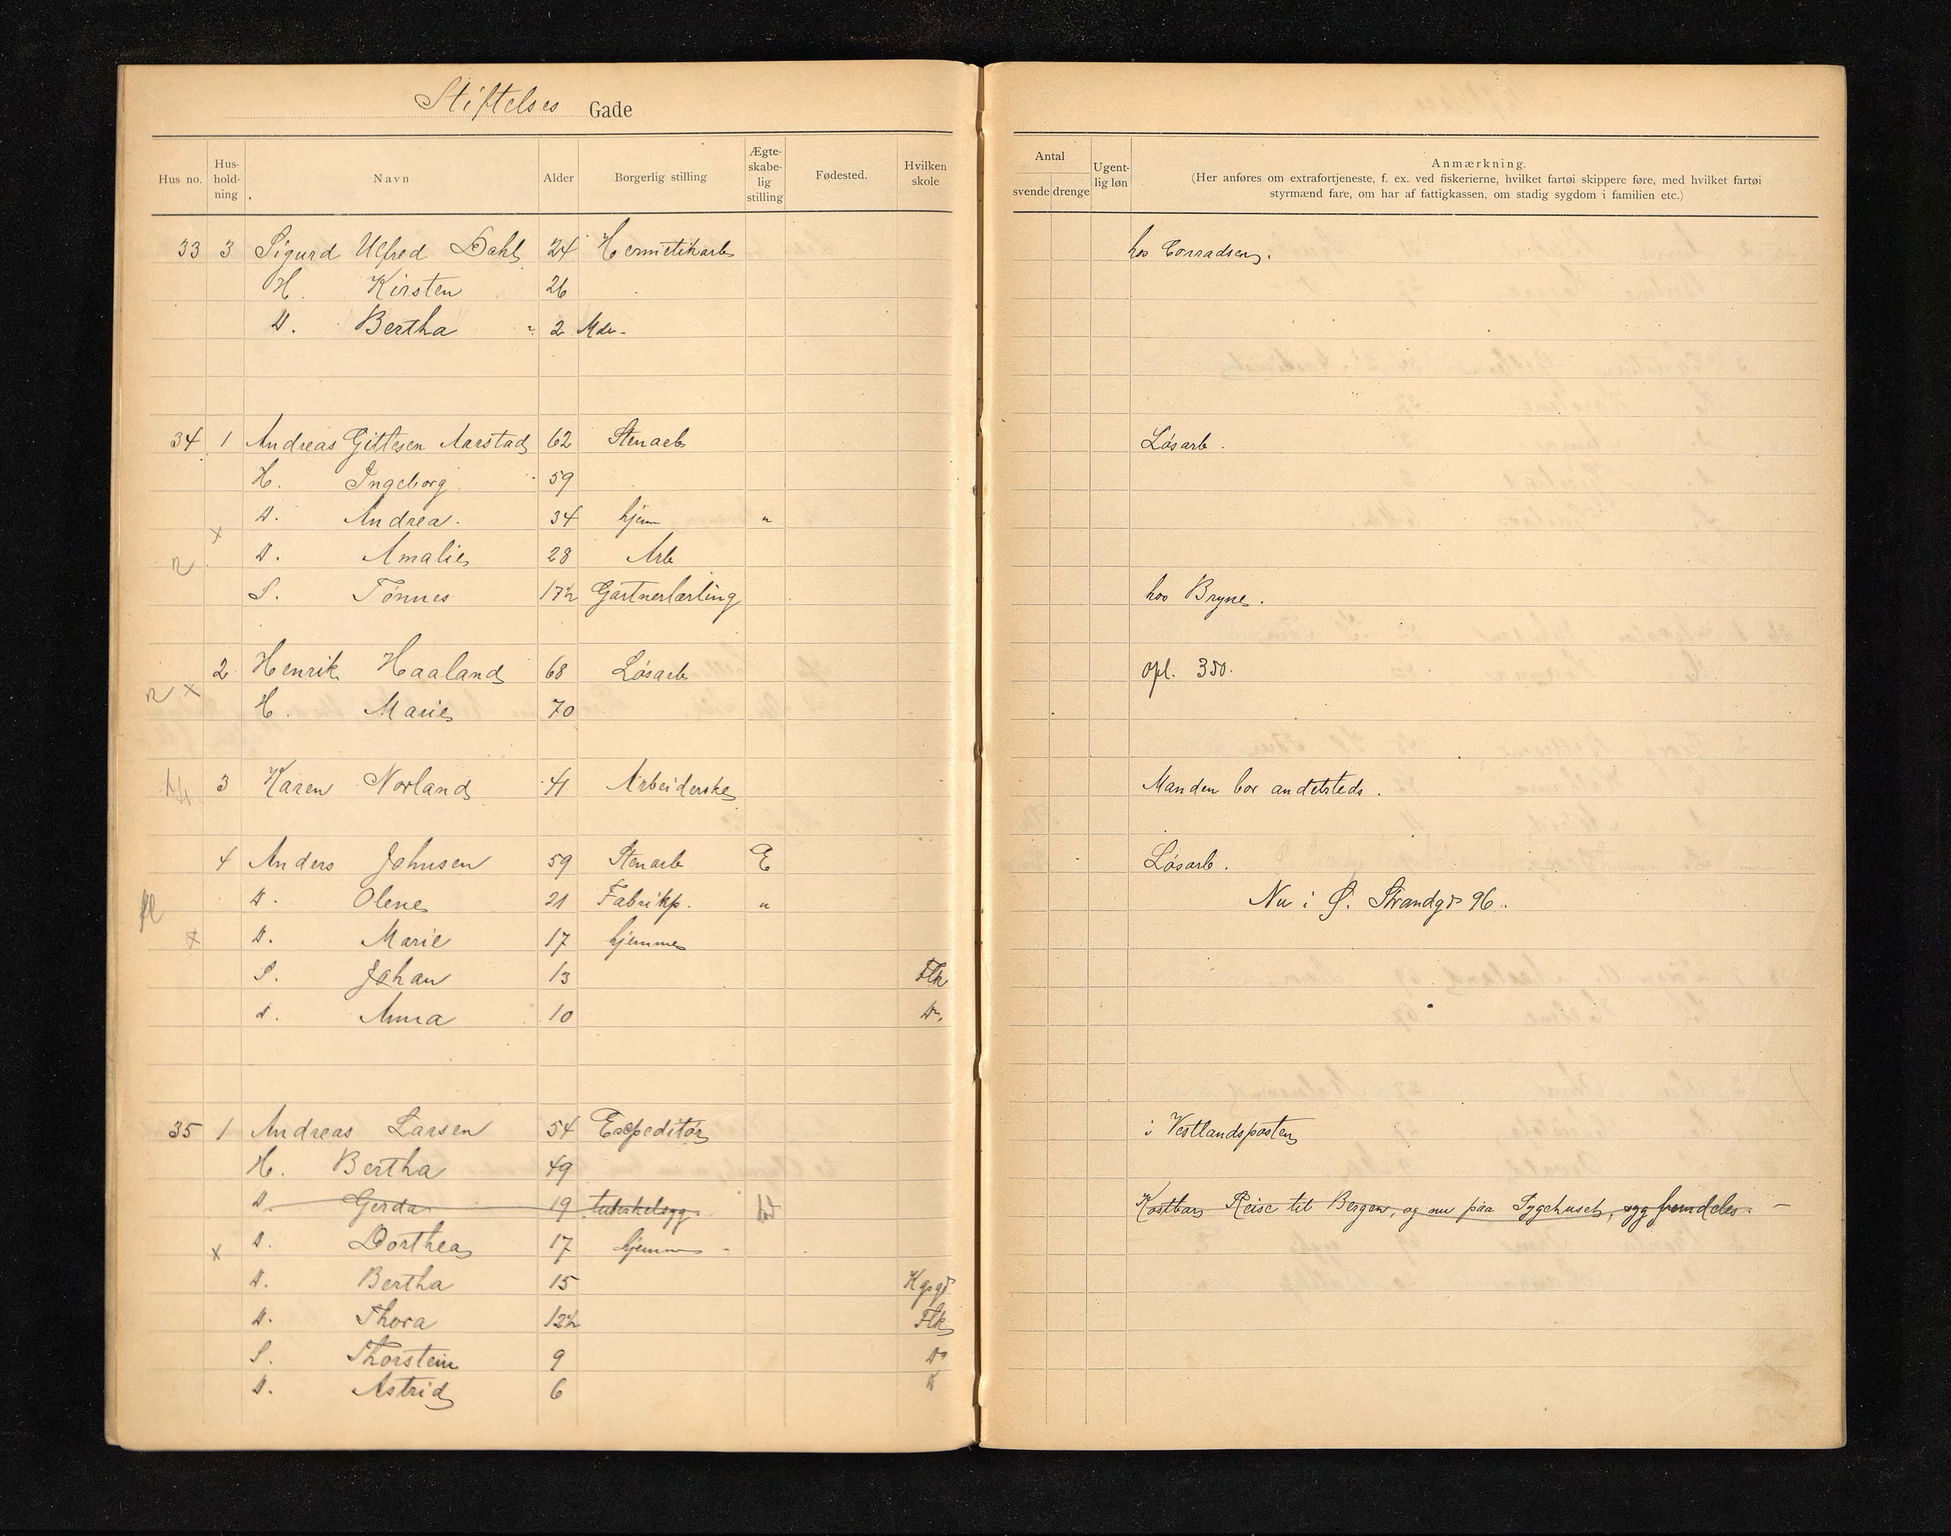 Stiftelses Gade
Hus no. Hus-hold-ning Navn Alder Borgerlig stilling Ægte-skabe-lig stilling Fødested. Hvilken skole Antal svende drenge Ugent-lig løn Anmærkning.
(Her anføres om extrafortjeneste, f. ex. ved fiskerierne, hvilket fartøi skippere føre, med hvilket fartøi
styrmænd fare, om har af fattigkassen, om stadig sygdom i familien etc.)
33 3 Sigurd Ulfred Dahl 24 Hermetikarb hos Conradsen.
H. Kirsten 26
D. Bertha 2 Mdr.
34 1 Andreas Gittlesen Aarstad 62 Stenarb Løsarb.
H. Ingeborg 59
D. Andrea. 34 hjem "
x
D. Amalie 28 Arb
S. Tønnes 17½ Gartnerlærling hos Bryne.
2 Henrik Haaland 68 Løsarb opl. 350.
x
H. Marie 70
3 Karen Norland 41 Arbeiderske Manden bor andetsteds.
4 Anders Johnsen 59 Stenarb E Løsarb.
D. Olene 21 Fabrikp. " Nu i Ø. Strandgd 96.
x D. Marie 17 hjemme
S. Johan 13 Flk
d. Anna 10 Do.
35 1 Andreas Larsen 54 Expeditør i Vestlandsposten
H. Bertha 49
D. Gerda 19 tuberkelsyg. Kostbar Reise til Bergen, og nu paa Sygehuset, syg fremdeles. —
x D. Dorthea 17 hjemme
D. Bertha 15 Kgsgd
D. Thora 12½ Flk
S. Thorstein 9 Do
D. Astrid 6 D